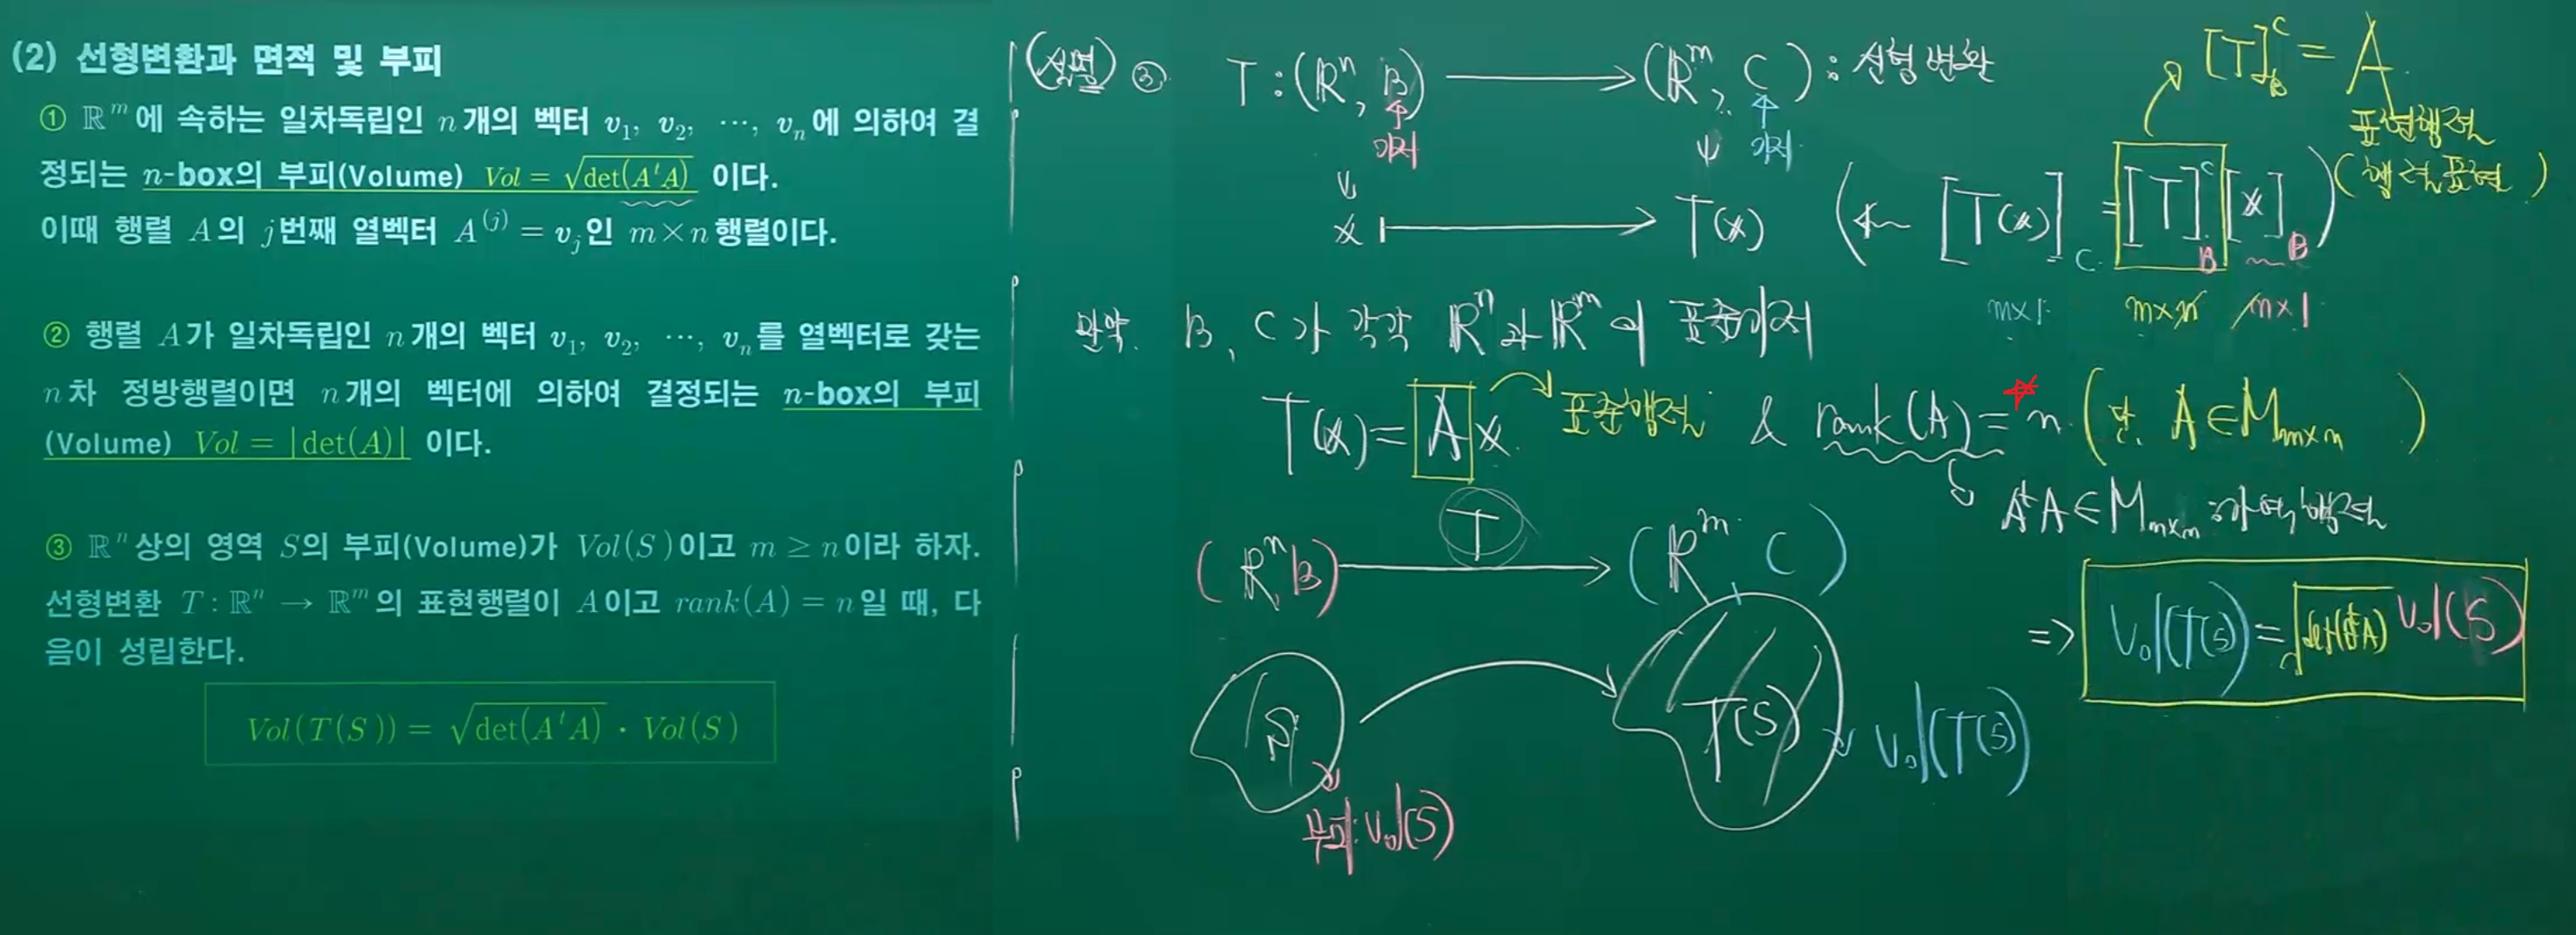 (2) 선형변환과 면적 및 부피
① ℝᵐ에 속하는 일차독립인 n개의 벡터 v₁, v₂, ⋯, vₙ에 의하여 결
정되는 n-box의 부피(Volume) Vol = √det(AᵗA) 이다.
이때 행렬 A의 j번째 열벡터 A⁽ʲ⁾ = vⱼ인 m×n행렬이다.
② 행렬 A가 일차독립인 n개의 벡터 v₁, v₂, ⋯, vₙ를 열벡터로 갖는
n차 정방행렬이면 n개의 벡터에 의하여 결정되는 n-box의 부피
(Volume) Vol = |det(A)| 이다.
③ ℝⁿ상의 영역 S의 부피(Volume)가 Vol(S)이고 m ≥ n이라 하자.
선형변환 T : ℝⁿ → ℝᵐ의 표현행렬이 A이고 rank(A) = n일 때, 다
음이 성립한다.
Vol(T(S)) = √det(AᵗA) · Vol(S)
(설명) ③ T : (ℝⁿ, B) → (ℝᵐ, C) : 선형변환
기저 기저
x ↦ T(x) (← [T(x)]_C = [T]_B^C [x]_B)
[T]_B^C = A
표현행렬
(행렬표현)
m×1 m×n m×1
만약. B, C가 각각 ℝⁿ과 ℝᵐ의 표준기저
T(x) = A x 표준행렬 & rank(A) = n (단, A ∈ M_{m×n})
AᵗA ∈ M_{m×m} : 가역행렬
(ℝⁿ, B) T → (ℝᵐ, C)
⇒ Vol(T(S)) = √det(AᵗA) Vol(S)
S T(S) Vol(T(S))
부피 : Vol(S)